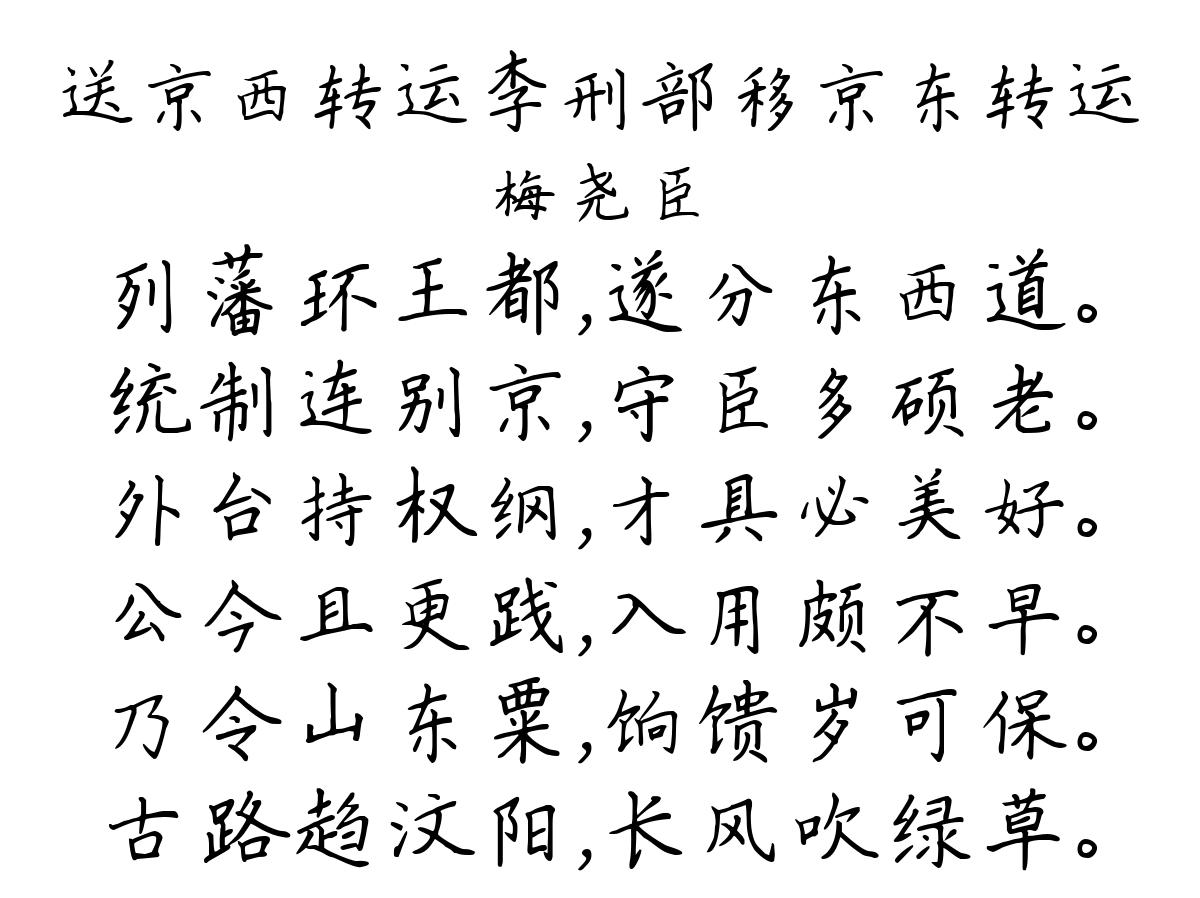 送京西转运李刑部移京东转运
梅尧臣
列藩环王都,遂分东西道。
统制连别京,守臣多硕老。
外台持权纲,才具必美好。
公今且更践,入用颇不早。
乃令山东粟,饷馈岁可保。
古路趋汶阳,长风吹绿草。